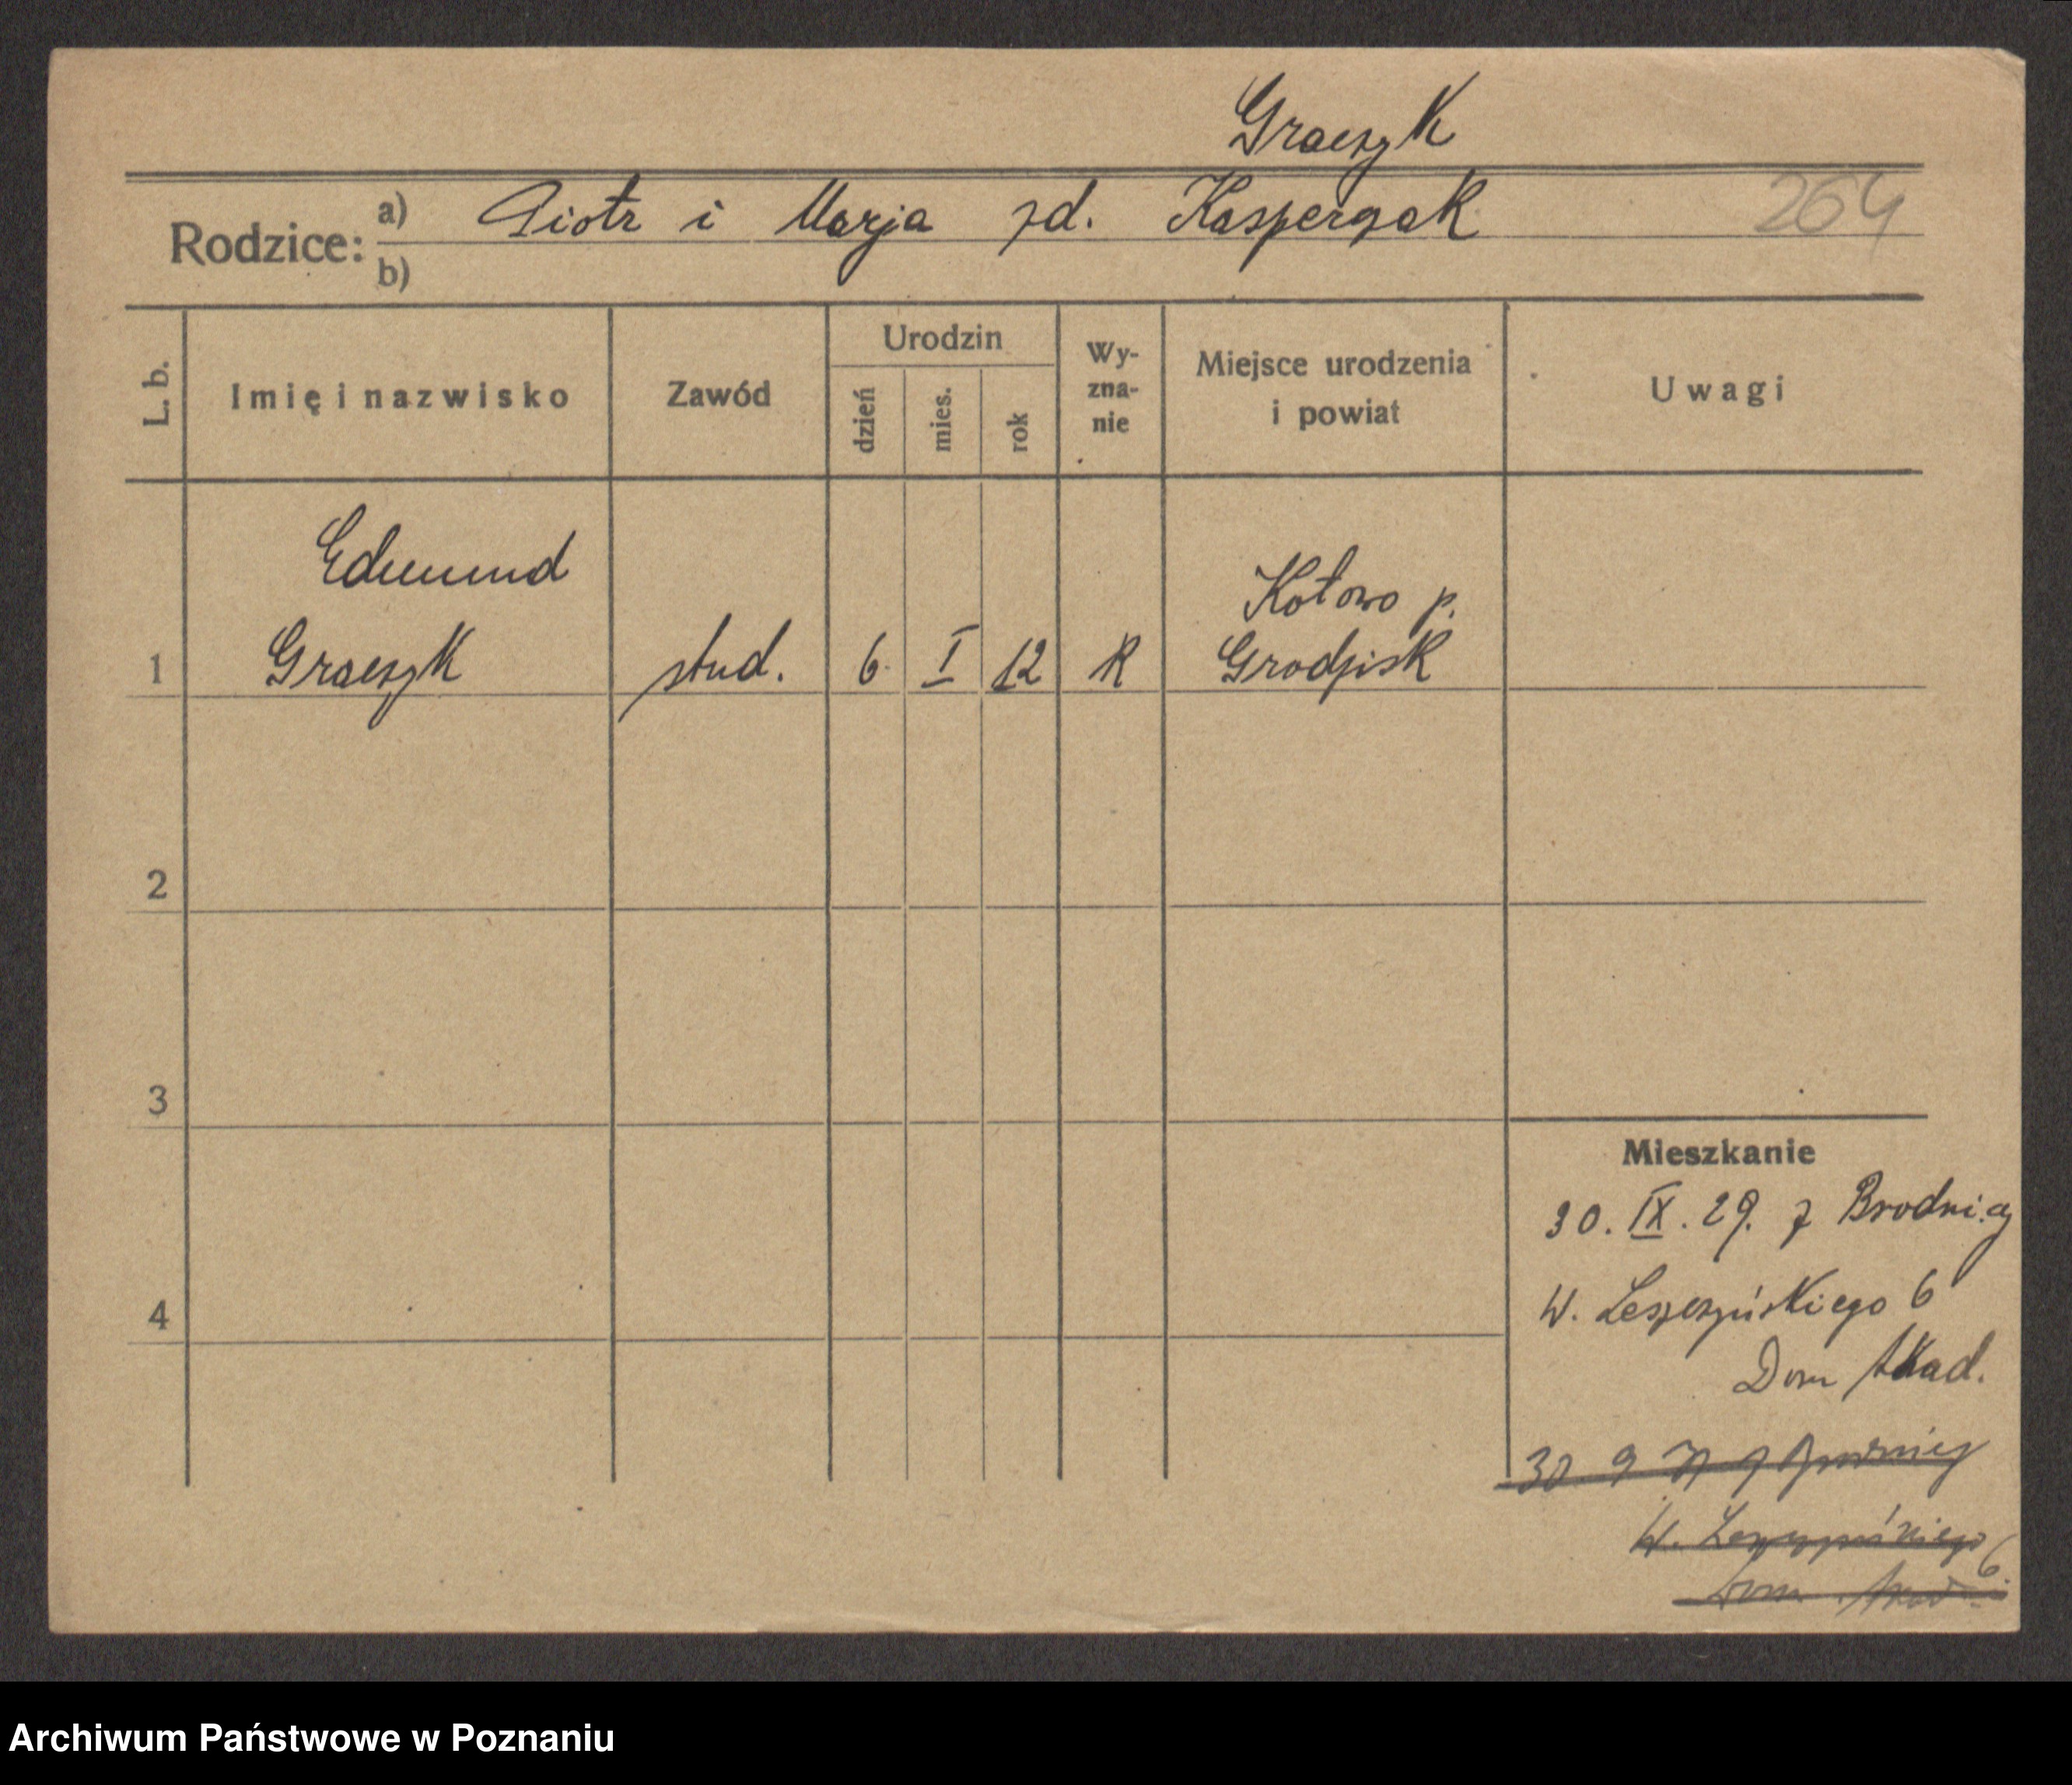 Graczyk
Rodzice: a) Piotr i Marja zd. Kasperzak
264
b)
L. b.
Imię i nazwisko
Zawód
Urodzin
dzień
mies.
rok
Wy-
zna-
nie
Miejsce urodzenia
i powiat
Uwagi
Edmund
Kotowo p.
1 Graczyk stud. 6. I 12 R Grodzisk
2
3
Mieszkanie
30. IX. 29. z Brodnicy
4
W. Leszczyńskiego 6
Dom Akad.
30 9
W. Leszczyńskiego 6.
Dom Akad.